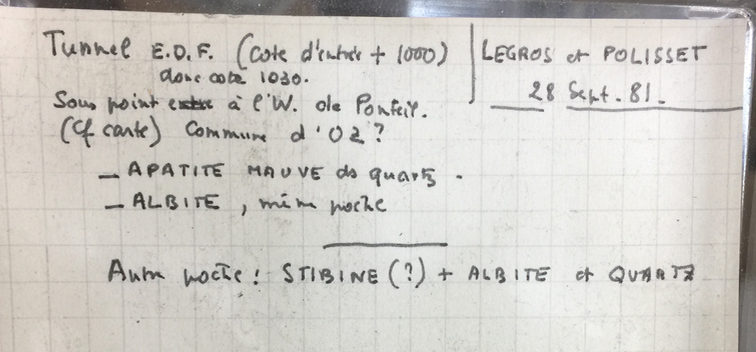 Tunnel E.D.F. (cote d'entrée + 1000)
donc cote 1030.
LEGROS et POLISSET
28 Sept. 81.
Sous point à l'W. de
(Cf carte) Commune d'OZ ?
– APATITE MAUVE ds quartz.
– ALBITE, même poche
Autre poche : STIBINE (?) + ALBITE et QUARTZ